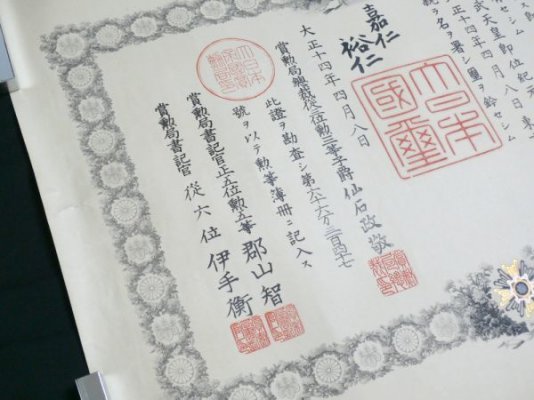 武天皇即位紀元
正十四年四月八日東
親ラ名ヲ署シ璽ヲ鈐セシム
嘉仁
裕仁
大日本國璽
大正十四年四月八日
賞勲局總裁從二位勲三等子爵仙石政敬
此證ヲ勘査シ第六十六万三百四十七
號ヲ以テ勲等簿冊ニ記入ス
賞勲局書記官正五位勲五等郡山智
賞勲局書記官從六位伊手衡